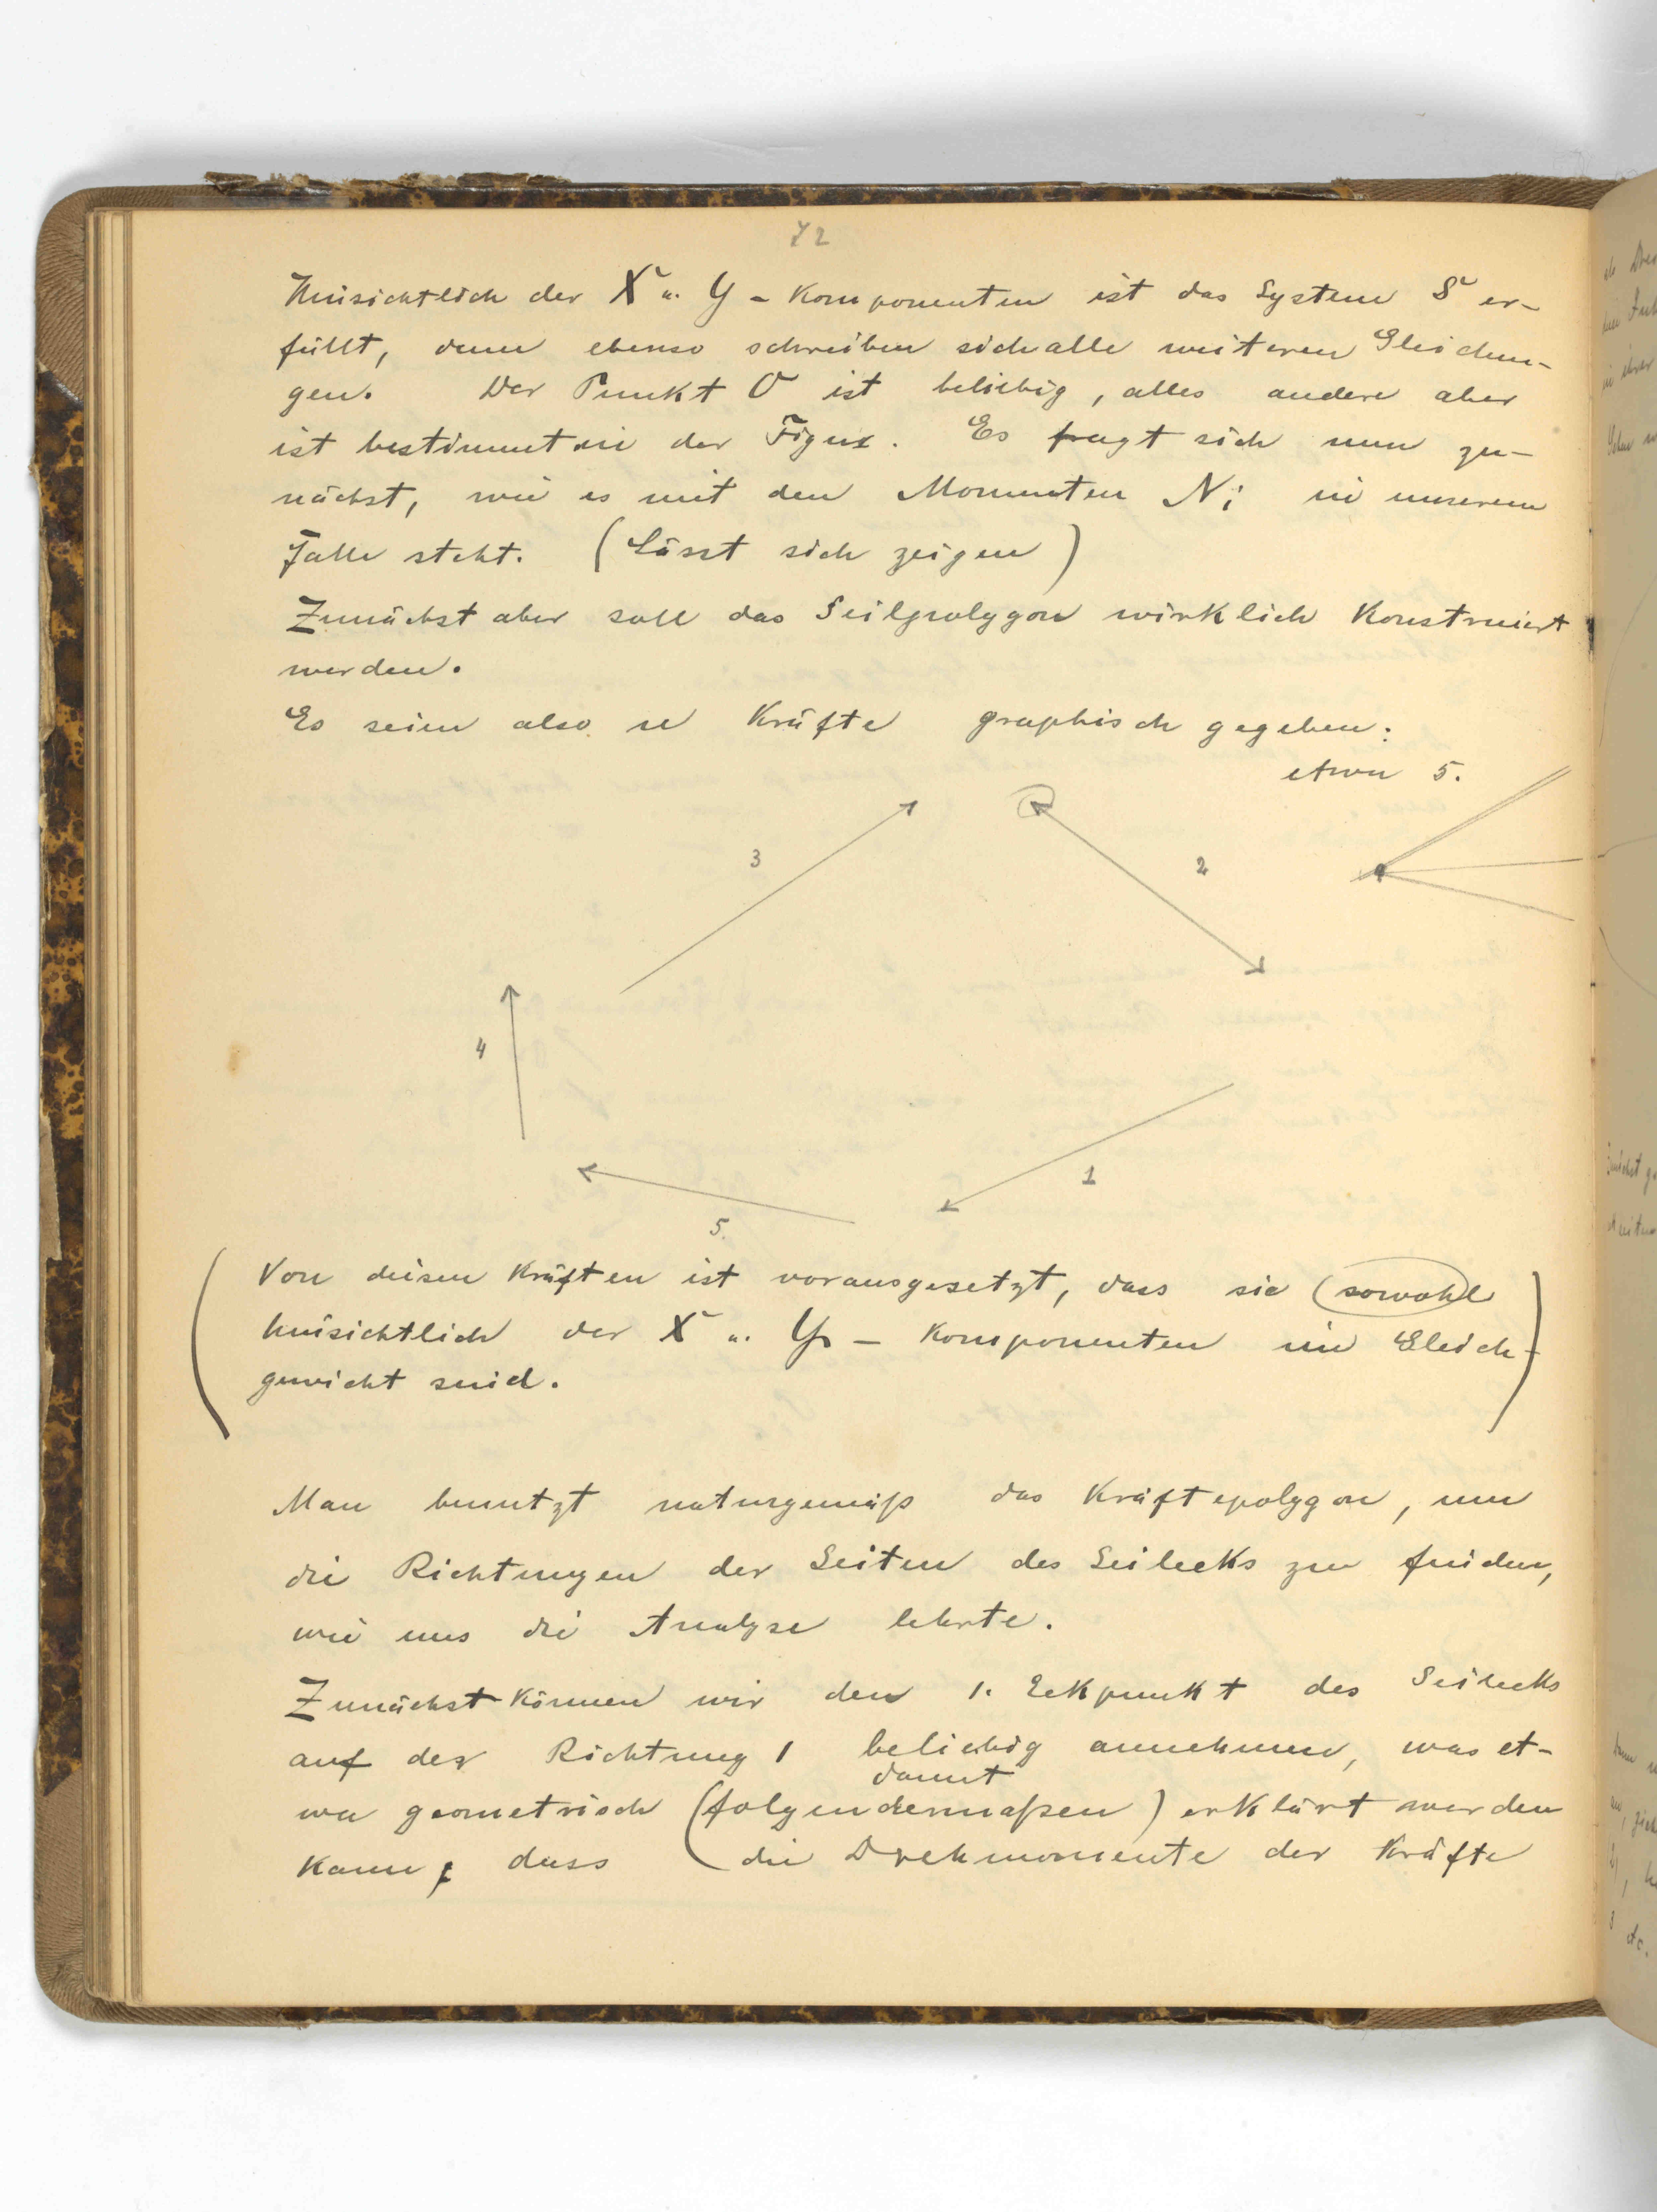 72
Hinsichtlich der X u. Y - Komponenten ist das System S er-
füllt, denn ebenso schreiben sich alle weiteren Gleichun-
gen. Der Punkt O ist beliebig, alles andere aber
ist bestimmt in der Figur. Es fragt sich nun zu-
nächst, wie es mit den Momenten Ni in unserem
Falle steht. (Lässt sich zeigen)
Zunächst aber soll das Seilpolygon wirklich Konstruiert
werden.
Es seien also n Kräfte graphisch gegeben:
etwa 5.
3
2
4
1
5.
Von diesen Kräften ist vorausgesetzt, dass sie (sowohl
hinsichtlich der X u. Y - Komponenten im Gleich-
gewicht sind.
Man benutzt naturgemäß das Kräftepolygon, um
die Richtungen der Seiten des Seilecks zu finden,
wie uns die Analyse lehrte.
Zunächst Können wir den 1. Eckpunkt des Seilecks
auf der Richtung 1 beliebig annehmen, was et-
damit
wa geometrisch (folgendermaßen) erklärt werden
Kann, dass die Drehmomente der Kräfte